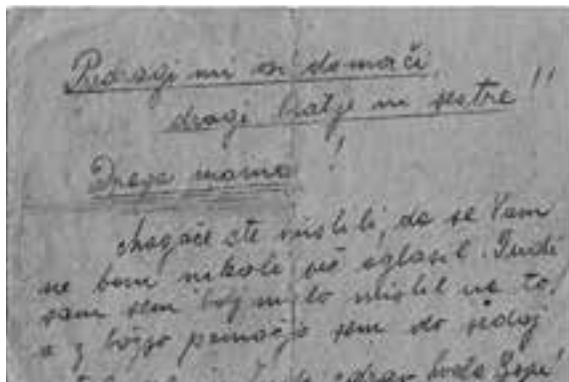 Predragi mi vsi domači,
dragi bratje in sestre!!
Draga mama!
Mogoče ste mislili, da se Vam
ne bom nikoli več oglasil. Tudi
sam sem bolj malo mislil na to,
a z božjo pomočjo sem do sedaj
zdrav hvala Bogu!